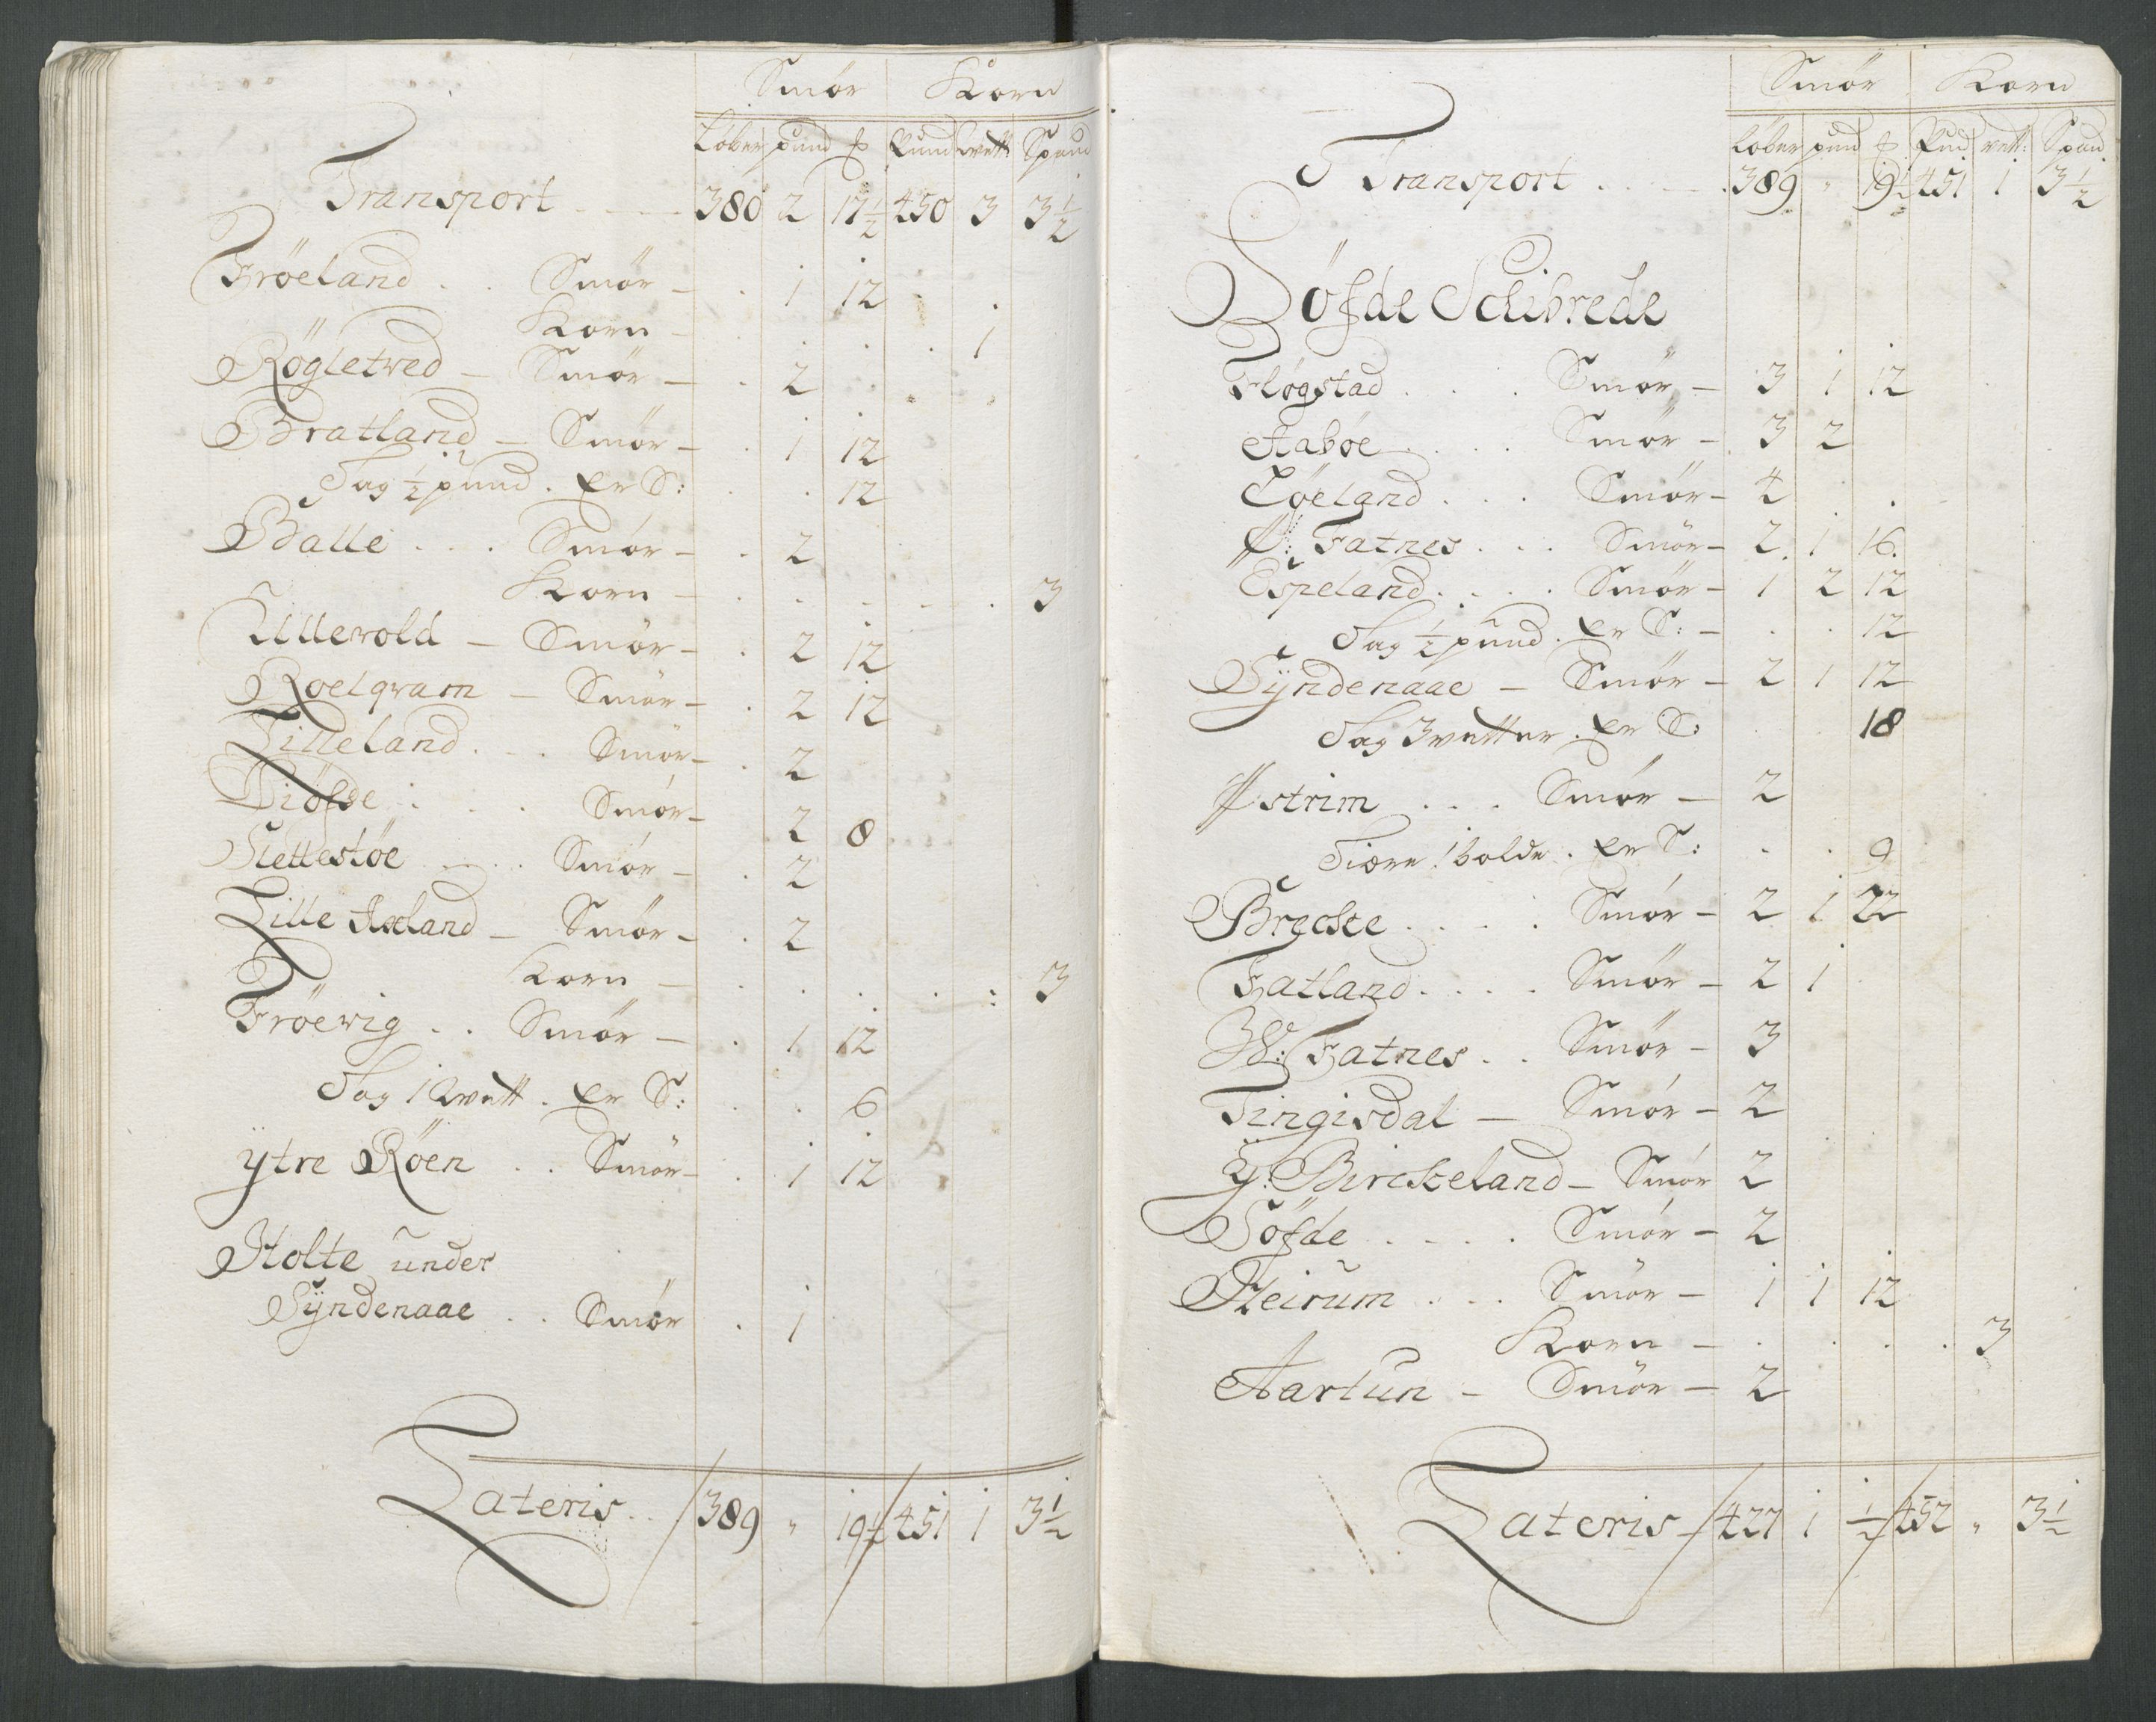 Smör Korn
Løber pund ℔ Pund vett Spand
Transport 380 2 17½ 450 3 3½
Fröeland . . Smör - . 1 12
Korn - . . . . 1
Rögletved - Smör - . 2
Bratland - Smör - . 1 12
Sag ½ pund . Er S: . . 12
Balle . . . Smör - . 2
Korn - . . . . . 3
Ullevold - Smör - . 2 12
Roelqvam - Smör - . 2 12
Lilleland . . . Smör - . 2
Diöfse . . . Smör - 2 8
Slettestöe . . . Smör - . 2
Lille Axland - Smör - . 2
Korn - . . . . : 3
Fröevig . . Smör - . 1 12
Sag 1 Qvett . Er S: . . 6
ÿtre Röen . . Smör - . 1 12
Holte under
Sÿndenaae . . Smör . 1
Lateris . . 389 " 19½ 451 1 3½
Smör Korn
Løber pund ℔ Pud vett: Spand
Transport . . . . 389 " 19½ 451 1 3½
Söfde Schibrede
Fløgstad . . . Smör - 3 1 12
Aabøe . . . . Smör - 3 2
Löeland . . . Smör - 4
Ø: Fatnes . . . Smör - 2 1 16
Espeland . . . . Smör - 1 2 12
Sag ½ pund . Er S: - . . 12
Sÿndenaae - Smör - 2 1 12
Sag 3 vetter . Er S: . . 18
Østrim . . . Smör - 2
Tiære 1 bolde . Er S: . . 9
Brecke . . . . Smör - 2 1 22
Hatland . . . . Smör - 2 1
W: Fatnes . . Smör - 3
Tingisdal - Smör - 2
Y: Birckeland - Smör 2
Söfde . . . . Smör - 2
Heirum . . . Smör - 1 1 12
Korn - . . . . . 3
Aartun - Smör - 2
Lateris - 427 1 ½ 452 " 3½